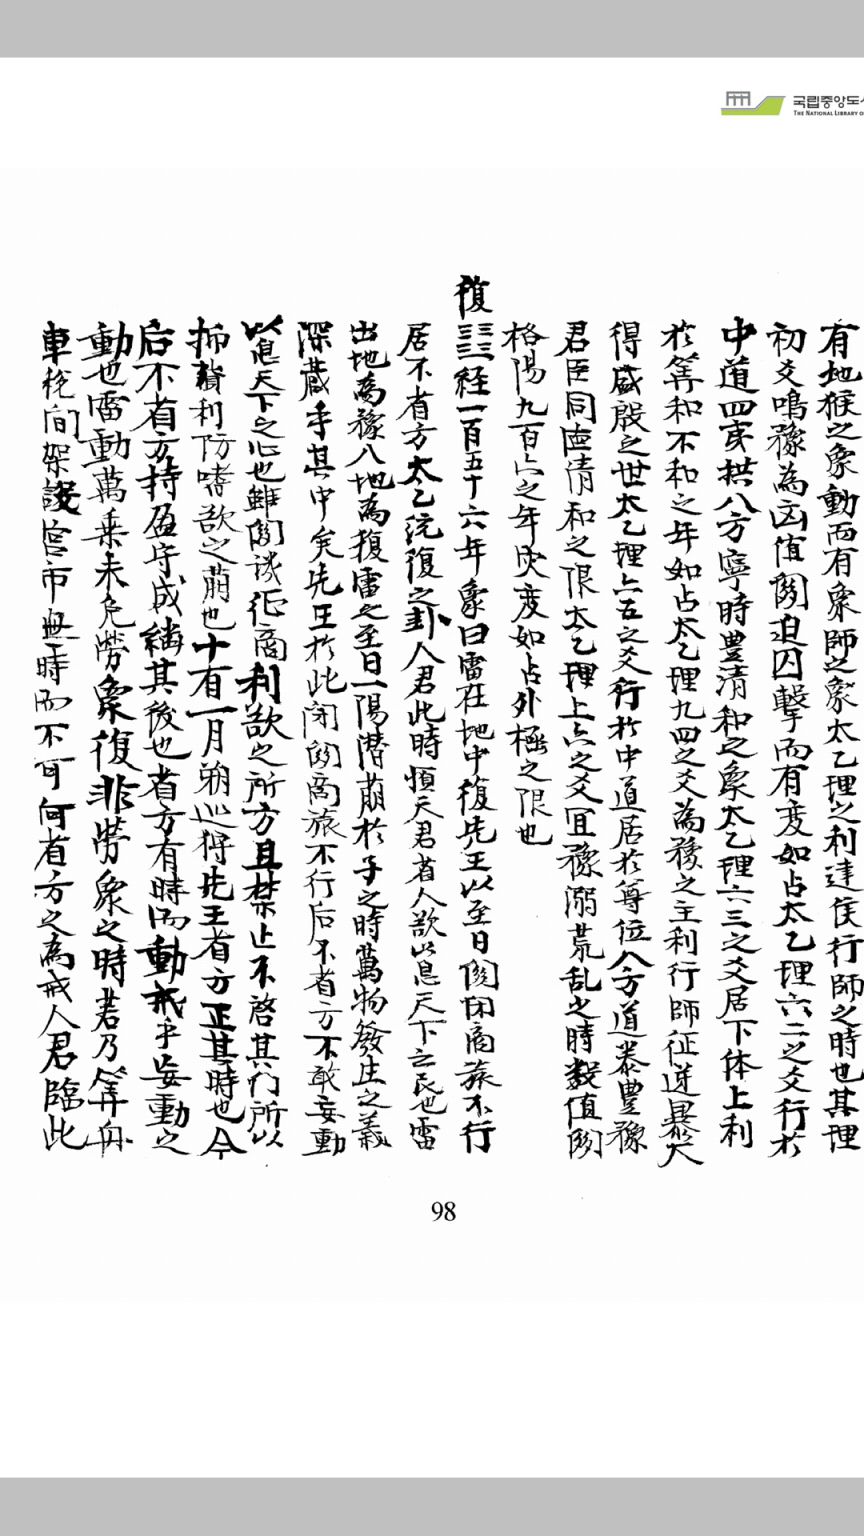 국립중앙도서
THE NATIONAL LIBRARY O
有地猴之象動而有衆師之象太乙理之利達侯行師之時也其理
初爻鳴豫為凶值関迫囚擊而有变如占太乙理六二之爻行於
中道四字拱八方寧時豊清和之象太乙理六三之爻居下体上利
於筭和不和之年如占太乙理九四之爻為豫之主利行師征逆暴大
得盛殷之世太乙理六五之爻行於中道居於尊位八方道泰豊豫
君臣同啚清和之限太乙理上六之爻冝豫溺荒乱之時数值関
格陽九百六之年灾变如占外極之限也
復 経一百五十六年象曰雷在地中復先王以至日関閉商旅不行
居不省方太乙統復之卦人君此時順天君省人欲以息天下之民也雷
出地為豫入地為復雷之至日一陽潜萠於子之時萬物發庄之義
深蔵乎其中矣先王於此閉関商旅不行后不省方不敢妄動
以息天下之心也雖関譏征商利欲之所方且禁止不啓其门所以
拆賤利防嗜欲之萠也十有一月朔巡狩先王省方正其時也今
后不省方持盈守成繙其後也省方有時而動戒乎妄動之
動也雷動萬乗未免労衆復非労衆之時若乃筭舟
車税间架設宫市無時而不可何省方之為戒人君臨此
98